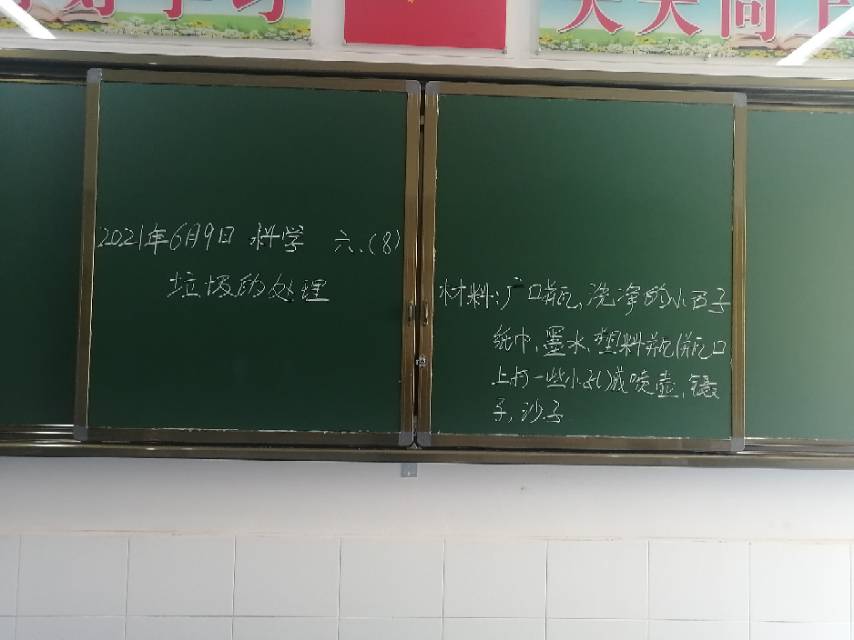 好好学习
天天向上
2021年6月9日 科学 六.(8)
垃圾的处理
材料:广口瓶、洗净的小石子
纸巾、墨水、塑料瓶(瓶口
上打一些小孔)或喷壶、镊
子、沙子